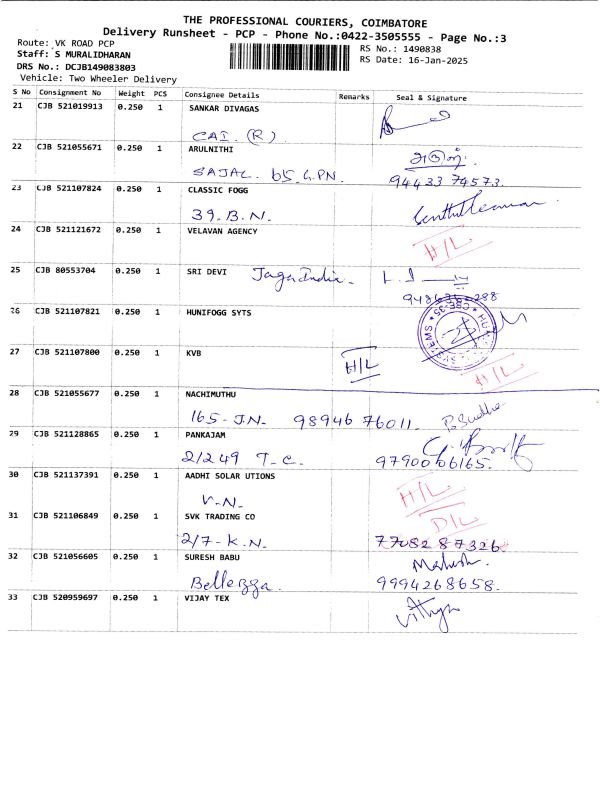 THE PROFESSIONAL COURIERS, COIMBATORE
Delivery Runsheet - PCP - Phone No.:0422-3505555 - Page No.:3
Route: VK ROAD PCP
Staff: S MURALIDHARAN
DRS No.: DCJB149083803
Vehicle: Two Wheeler Delivery
RS No.: 1490838
RS Date: 16-Jan-2025
S No Consignment No Weight PCS Consignee Details Remarks Seal & Signature
21 CJB 521019913 0.250 1 SANKAR DIVAGAS
CAI (R)
22 CJB 521055671 0.250 1 ARULNITHI
SAJAL. b5. G.PN. 94433 74573.
23 CJB 521107824 0.250 1 CLASSIC FOGG
39. B. N.
24 CJB 521121672 0.250 1 VELAVAN AGENCY
H/L
25 CJB 80553704 0.250 1 SRI DEVI
26 CJB 521107821 0.250 1 HUNIFOGG SYTS
27 CJB 521107800 0.250 1 KVB
H/L H/L
28 CJB 521055677 0.250 1 NACHIMUTHU
165 - JN. 98946 76011.
29 CJB 521128865 0.250 1 PANKAJAM
2/249 T-C. 9790006165.
30 CJB 521137391 0.250 1 AADHI SOLAR UTIONS
V-N. H/L
31 CJB 521106849 0.250 1 SVK TRADING CO
D/L
2/7-K.N. 77082 87326.
32 CJB 521056605 0.250 1 SURESH BABU
Bellezza. 9994268658.
33 CJB 520959697 0.250 1 VIJAY TEX